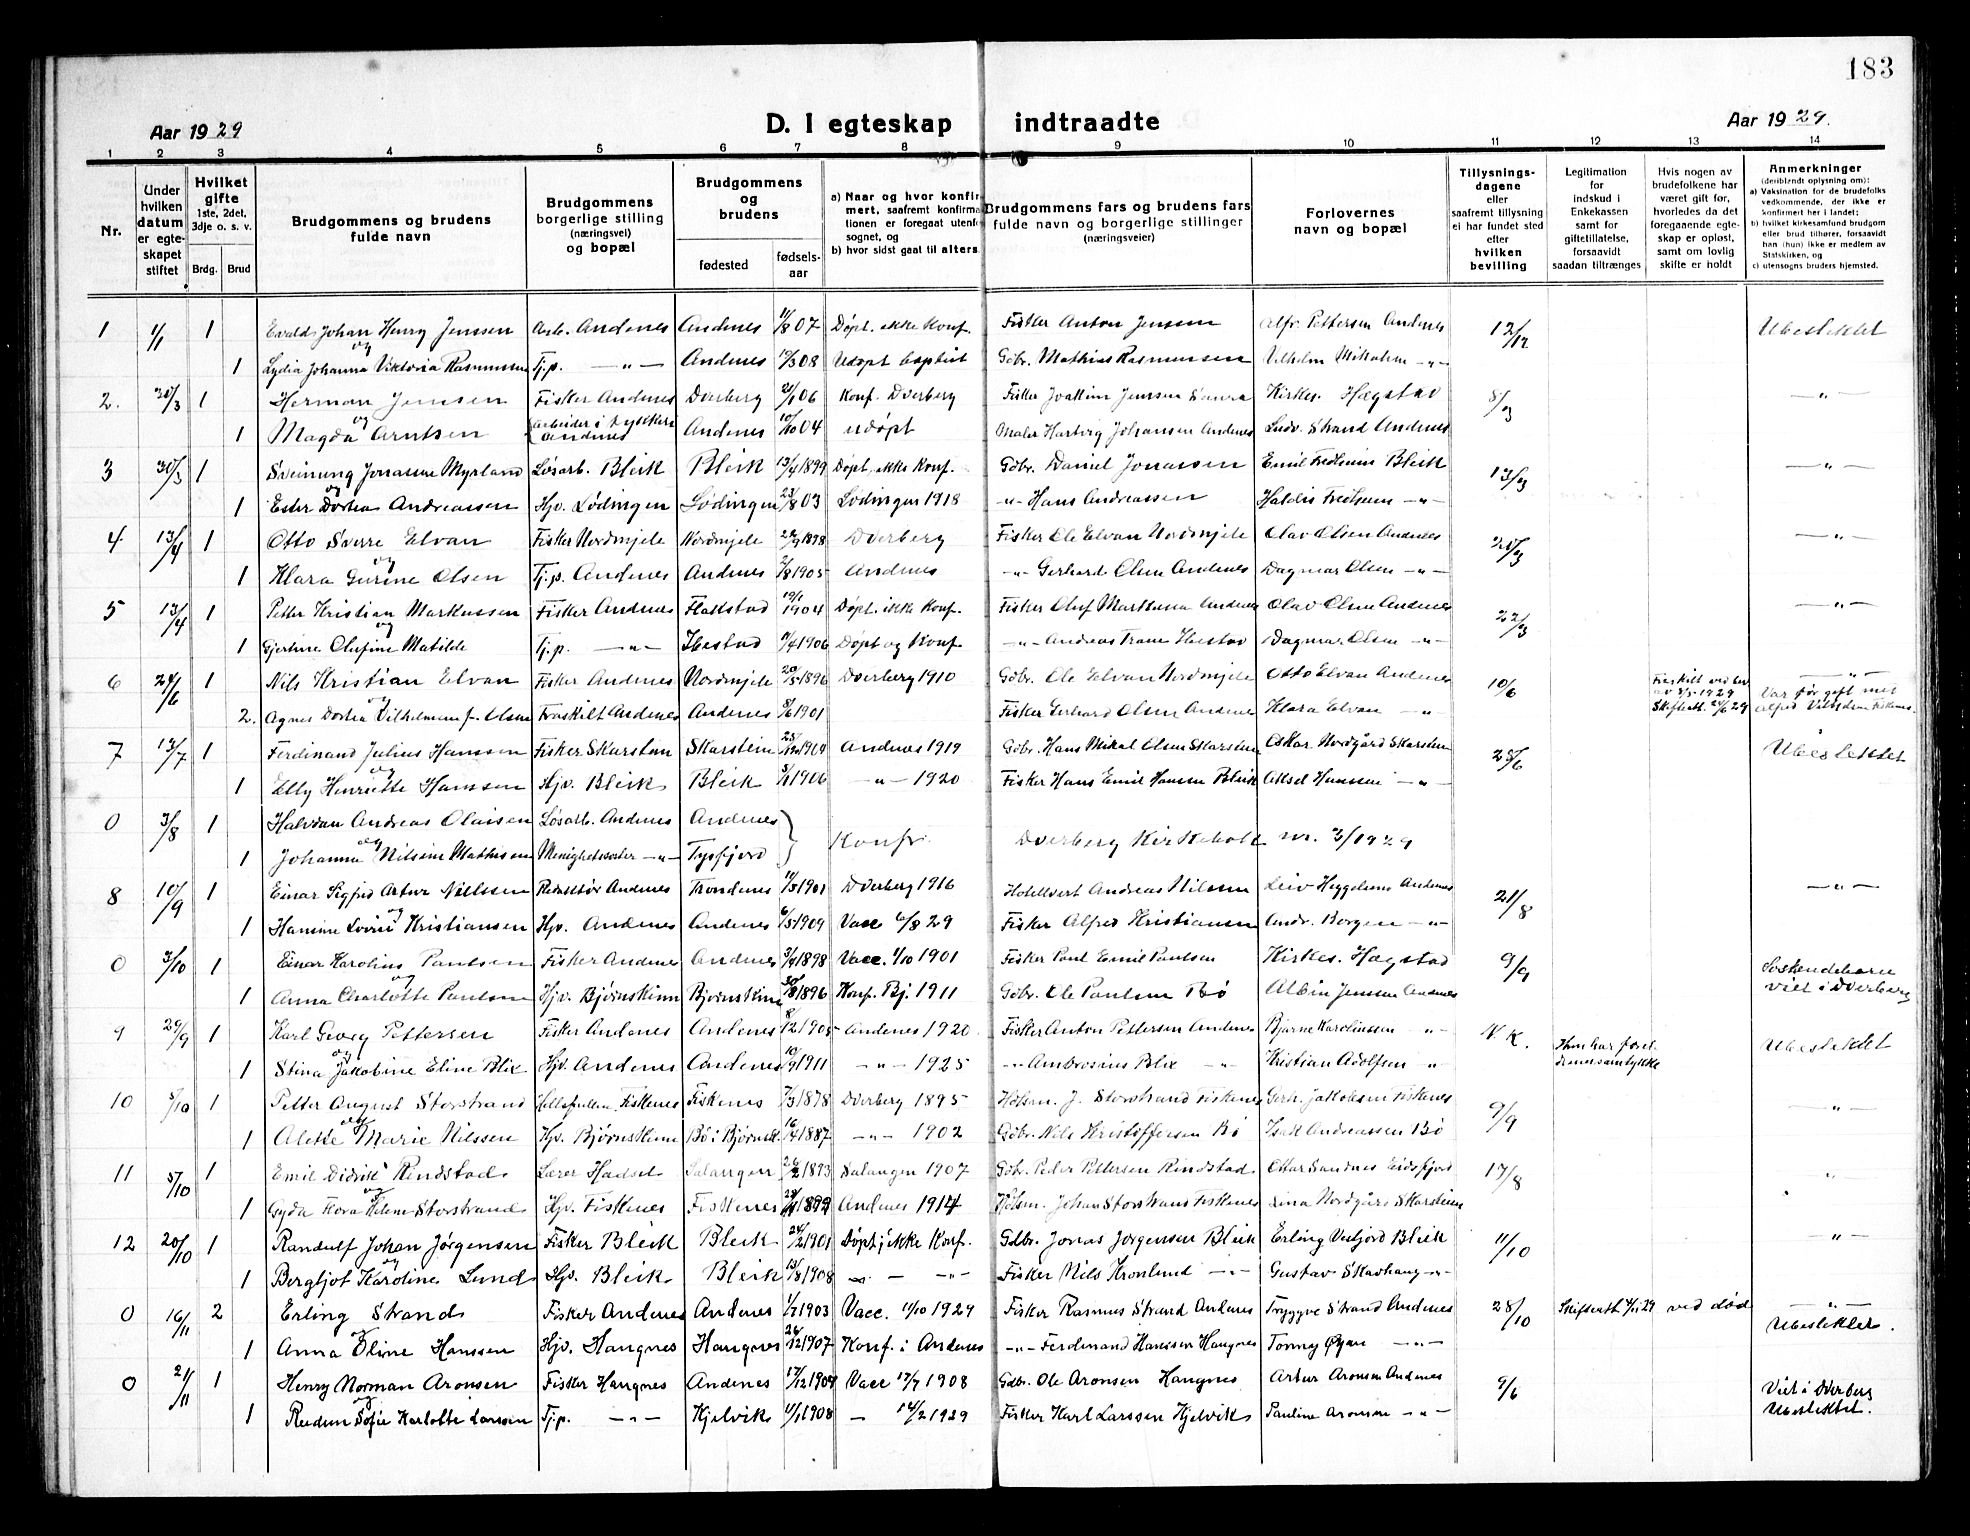 183
Aar 1929
D. I egteskap indtraadte
Aar 1929.
1 2 3 4 5 6 7 8 9 10 11 12 13 14
Nr.
Under hvilken datum er egteskapet stiftet
Hvilket gifte 1ste, 2det, 3dje o. s. v.
Brdg. Brud
Brudgommens og brudens fulde navn
Brudgommens borgerlige stilling (næringsvei) og bopæl
Brudgommens og brudens
fødested fødselsaar
a) Naar og hvor konfirmert, saafremt konfirmationen er foregaat utenfor sognet, og
b) hvor sidst gaat til alters.
Brudgommens fars og brudens fars fulde navn og borgerlige stillinger (næringsveier)
Forlovernes navn og bopæl
Tillysningsdagene eller saafremt tillysning ei har fundet sted efter hvilken bevilling
Legitimation for indskud i Enkekassen samt for giftetillatelse, forsaavidt saadan tiltrænges
Hvis nogen av brudefolkene har været gift før, hvorledes da det foregaaende egteskap er opløst, samt om lovlig skifte er holdt
Anmerkninger (deriblendt oplysning om):
a) Vaksination for de brudefolks vedkommende, der ikke er konfirmert her i landet;
b) hvilket kirkesamfund brudgom eller brud tilhører, forsaavidt han (hun) ikke er medlem av Statskirken, og
c) utensogns bruders hjemsted.
1 1/1 1 Evald Johan Henry Jenssen Arb. Andenes Andenes 11/8 07 Døpt. ikke Konf. Fisker Anton Jenssen Alfr. Pettersen Andenes 12/12 Ubeslektet
og
1 Lydia Johanna Viktoria Rasmussen Tj.p. —„— Andenes 17/3 08 Udøpt baptist Gbr. Mathias Rasmussen Vilhelm —„—
2. 30/3 1 Herman Jenssen Fisker Andenes Dverberg 21/1 06 Konf. Dverberg Fisker Joakim Jenssen Kirkes. Hægstad 8/3 —„—
og
1 Magda Arntsen Arbeider i Andenes Andenes 10/10 04 udøpt Maler Hartvig Johansen Andenes Ludv. Strand Andenes
3 30/3 1 Sveinung Jonassen Myrland Løsarb. Bleik Bleik 13/4 1899 Døpt. ikke Konf. Gbr. Daniel Jonassen Emil Fredheim Bleik 13/3 —„—
og
1 Ester Dortea Andreassen Hjv. Lødingen Lødingen 23/8 03 Lødingen 1918 „ Hans Andreassen Haldis Fredheim —„—
4. 13/4 1 Otto Sverre Elvan Fisker Nordmjele Nordmjele 22/9 1898 Dverberg Fisker Ole Elvan Nordmjele Olav Olsen Andenes 20/3 —„—
og
1 Klara Gurine Olsen Tj.p. Andenes Andenes 2/8 1905 Andenes —„— Gerhard Olsen Andenes Dagmar Olsen —„—
5 13/4 1 Petter Kristian Markussen Fisker Andenes Flakstad 19/1 1904 Døpt. ikke Konf. Fisker Oluf Markussen Andenes Olav Olsen Andenes 22/3 —„—
og
1 Gjertine Olufine Matilde Tj.p. —„— Ibestad 11/4 1906 Døpt og Konf. —„— Andreas Trane Ibestad Dagmar Olsen —„—
6 24/6 1 Nils Kristian Elvan Fisker Andenes Nordmjele 20/5 1896 Dverberg 1910 Gbr. Ole Elvan Nordmjele Otto Elvan Andenes 10/6 Fraskilt ved bev. av 3/5 1929 Skifteatt. 24/6 29 —„—
og
2. Agnes Dortea Vilhelmsen f. Olsen Fraskilt Andenes Andenes 5/6 1901 Fisker Gerhard Olsen Andenes Klara Elvan —„— Var før gift met Alfred Vilhelmsen Fiskenes.
7 13/7 1 Ferdinand Julius Hanssen Fisker Skarstein Skarstein 25/12 1904 Andenes 1919 Gbr. Hans Mikal Olsen Skarstein Oskar Nordgård Skarstein 25/6 Ubeslektet
og
1 Elly Henriette Hanssen Hjv. Bleik Bleik 5/1 1906 —„— 1920 Fisker Hans Emil Hanssen Bleik Aksel Hanssen —„—
0 3/8 1 Halvdan Andreas Olaisen Løsarb. Andenes Andenes
og Konfr. Dverberg Kirkebok nr. 3/1929
1 Johanna Nilsine Mathisen Menighetssøster —„— Tysfjord
8 10/9 1 Einar Sigfred Artur Nilssen Redaktør Andenes Trondenes 11/5 1901 Dverberg 1916 Hotellvert Andreas Nilssen Leiv Heggelund Andenes 21/8 —„—
og
1 Hansine Lovise Kristiansen Hjv. Andenes Andenes 6/5 1909 Vacc 6/8 29 Fisker Alfred Kristiansen Andr. Borgen —„—
0 3/10 1 Einar Karolius Paulsen Fisker Andenes Andenes 3/4 1898 Vacc. 1/10 1901 Fisker Paul Emil Paulsen Kirkes. Hægstad 9/9 Søskendebarn viet i Dverberg
og
1 Anna Charlotte Paulsen Hjv. Bjørnskinn Bjørnskinn 30/8 1896 Konf. Bj. 1911 Gbr. Ole Paulsen Bø Albin Jenssen Andenes
9 29/9 1 Karl Georg Pettersen Fisker Andenes Andenes 8/12 1905 Andenes 1920 Fisker Anton Pettersen Andenes Bjarne Karolinssen „ N. K. Hun har foreldrenes samtykke Ubeslektet
og
1 Stina Jakobine Eline Blix Hjv. Andenes Andenes 10/9 1911 —„— 1925 —„— Ambrosius Blix —„— Kristian Adolfsen „
10 5/10 1 Petter August Storstrand Fiskenes Fiskenes 7/3 1878 Dverberg 1895 Husm. J. Storstrand Fiskenes Gerh. Jakobsen Fiskenes 9/9 —„—
og
1 Alette Marie Nilssen Hjv. Bjørnskinn Bø i Bjørnsk. 16/4 1887 —„— 1902 Gbr. Nils Kristoffersen Bø Isak Andreassen Bø
11 5/10 1 Emil Didrik Rindstad Lærer Hadsel Salangen 26/2 1893 Salangen 1907 Gbr. Peder Pettersen Rindstad Ottar Sandnes Eidsfjord 17/8 „
og
1 Gyda Flora Helene Storstrand Hjv. Fiskenes Fiskenes 1899 Andenes 1914 Husm. Johan Storstrand Fiskenes Lina Nordgård Skarstein
12 20/10 1 Randulf Johan Jørgensen Fisker Bleik Bleik 24/2 1901 Døpt, ikke Konf. Gdbr. Jonas Jørgensen Bleik Erling Vesfjord Bleik 11/10 —„—
og
1 Bergljot Karoline Lund Hjv. Bleik Bleik 13/8 1908 —„— —„— Fisker Nils Kronlund —„— Gustav Skavhaug —„—
0 16/11 2 Erling Strand Fisker Andenes Andenes 1/7 1903 Vacc. 11/10 1929 Fisker Rasmus Strand Andenes Tryggve Strand Andenes 28/10 Skifteatt 4/11 29 ved død —„— Ubeslektet.
og
1 Anna Oline Hanssen Hjv. Haugnes Haugnes 26/12 1907 Konf. i Andenes —„— Ferdinand Hanssen Haugnes Tonny Øyan —„—
0 21/11 1 Henry Norman Aronsen Fisker Haugnes Andenes 17/12 1904 Vacc 17/7 1908 Gdbr. Ole Aronsen Haugnes Artur Aronsen Andenes 9/6 Viet i Dverberg Ubeslektet.
og
1 Reidun Sofie Karlotte Larssen Tj.p. —„— Kjelvik 4/1 1908 — 14/2 1929 Fisker Karl Larssen Kjelvik Pauline Aronsen —„—